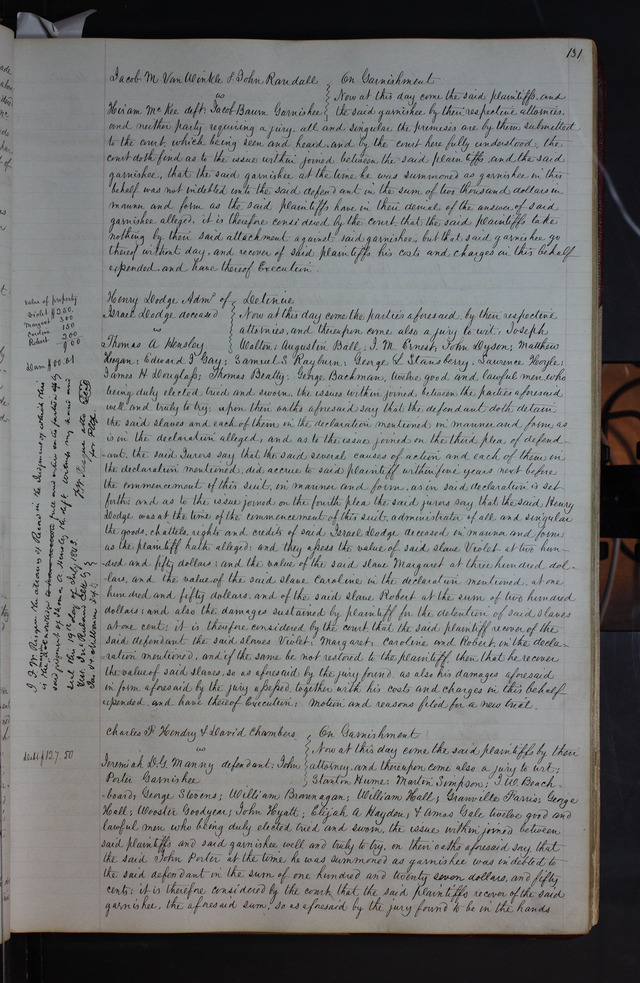 131
Jacob M Van Winkle & John Randall } On Garnishment
vs } Now at this day come the said plaintiffs, and
Hiram McKee deft: Jacob Baum Garnishee } the said garnishee by their respective attornies,
and neither party requiring a jury, all and singular the premises are by them submitted
to the court, which being seen and heard, and by the court here fully understood, the
court doth find as to the issue within joined between the said plaintiffs, and the said
garnishee, that the said garnishee at the time he was summoned as garnishee in this
behalf was not indebted unto the said defendant in the sum of two thousand dollars in
manner and form as the said plaintiffs have in their denial of the answer of said
garnishee alleged, it is therefore considered by the court, that the said plaintiffs take
nothing by their said attachment against said garnishee, but that said garnishee go
thereof without day, and recover of said plaintiffs his costs and charges in this behalf
expended, and have thereof Execution.
Henry Dodge Admr of } Detinue
Israel Dodge deceased } Now at this day come the parties aforesaid, by their respective
vs } attornies, and thereupon come also a jury to wit, Joseph
Thomas A Hensley } Walton; Augustin Ball; J. M. Ernest; John Dyson; Matthew
Hugan; Edward P Gay; Samuel S Rayburn; George L Stansberry; Lawrence Hoyle;
James H Douglass; Thomas Beatty; George Bachman, twelve good and lawful men, who
being duly elected tried and sworn, the issues within joined, between the parties aforesaid
well and truly to try; upon their oaths aforesaid say that the defendant doth detain
the said slaves and each of them in the declaration mentioned in manner and form as
is in the declaration alleged, and as to the issue joined on the third plea of defend-
ant, the said Jurors say that the said several causes of action and each of them in
the declaration mentioned, did accrue to said plaintiff within five years next before
the commencement of this suit, in manner and form, as in said declaration is set
forth; and as to the issue joined on the fourth plea the said jurors say that the said Henry
Dodge was at the time of the commencement of this suit, administrator of all, and singular
the goods, chattels, rights and credits of said Israel Dodge deceased in manner and form
as the plaintiff hath alleged; and they assess the value of said slave Violet at two hun-
dred and fifty dollars; and the value of the said slave Margaret at three hundred dol-
lars, and the value of the said slave Caroline in the declaration mentioned, at one
hundred and fifty dollars, and of the said slave Robert at the sum of two hundred
dollars; and also the damages sustained by plaintiff for the detention of said slaves
at one cent; it is therefore considered by the court that the said plaintiff recover of the
said defendant the said slaves Violet, Margaret, Caroline and Robert, in the decla-
ration mentioned, and if the same be not restored to the plaintiff, then that he recover
the value of said slaves, so as aforesaid by the jury found, as also his damages aforesaid
in form aforesaid by the jury assessed, together with his costs and charges in this behalf
expended, and have thereof Execution; motion and reasons filed for a new trial.
value of property
Violet $250.
Margaret 300
Caroline 150
Robert 200
900
Dam $00.01
Charles P Hendry & David Chambers } On Garnishment
vs } Now at this day come the said plaintiffs by their
Jeremiah D.G. Manny defendant; John } attorney, and thereupon come also a jury to wit:
Porter Garnishee } Stanton Hume; Martin Simpson; J.W. Beach-
board; George Stevens; William Brannagan; William Hall; Granville Farris; George
Hall; Wooster Goodyear; John Hyatt; Elijah A Hayden; & Amos Gale twelve good and
lawful men who being duly elected tried and sworn, the issue within joined between
said plaintiffs and said garnishee well and truly to try, on their oaths aforesaid say that
the said John Porter at the time he was summoned as garnishee was indebted to
the said defendant in the sum of one hundred and twenty seven dollars, and fifty
cents; it is therefore considered by the court, that the said plaintiffs recover of the said
garnishee, the aforesaid sum, so as aforesaid by the jury found to be in the hands
Debt $127.50